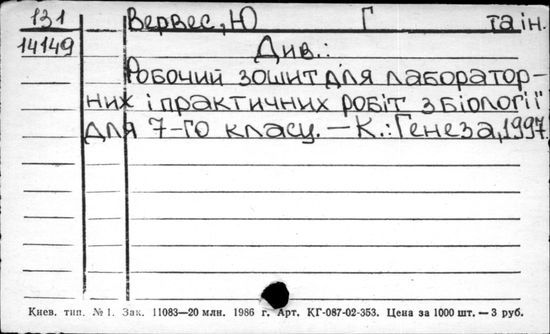 131 Вервес, Ю Г та ін.
14149 Див.:
Робочий зошит для лаборатор-
них і практичних робіт з біології
для 7-го класу. — К.: Генеза, 1997
Киев. тип. № 1. Зак. 11083—20 млн. 1986 г. Арт. КГ-087-02-353. Цена за 1000 шт. — 3 руб.